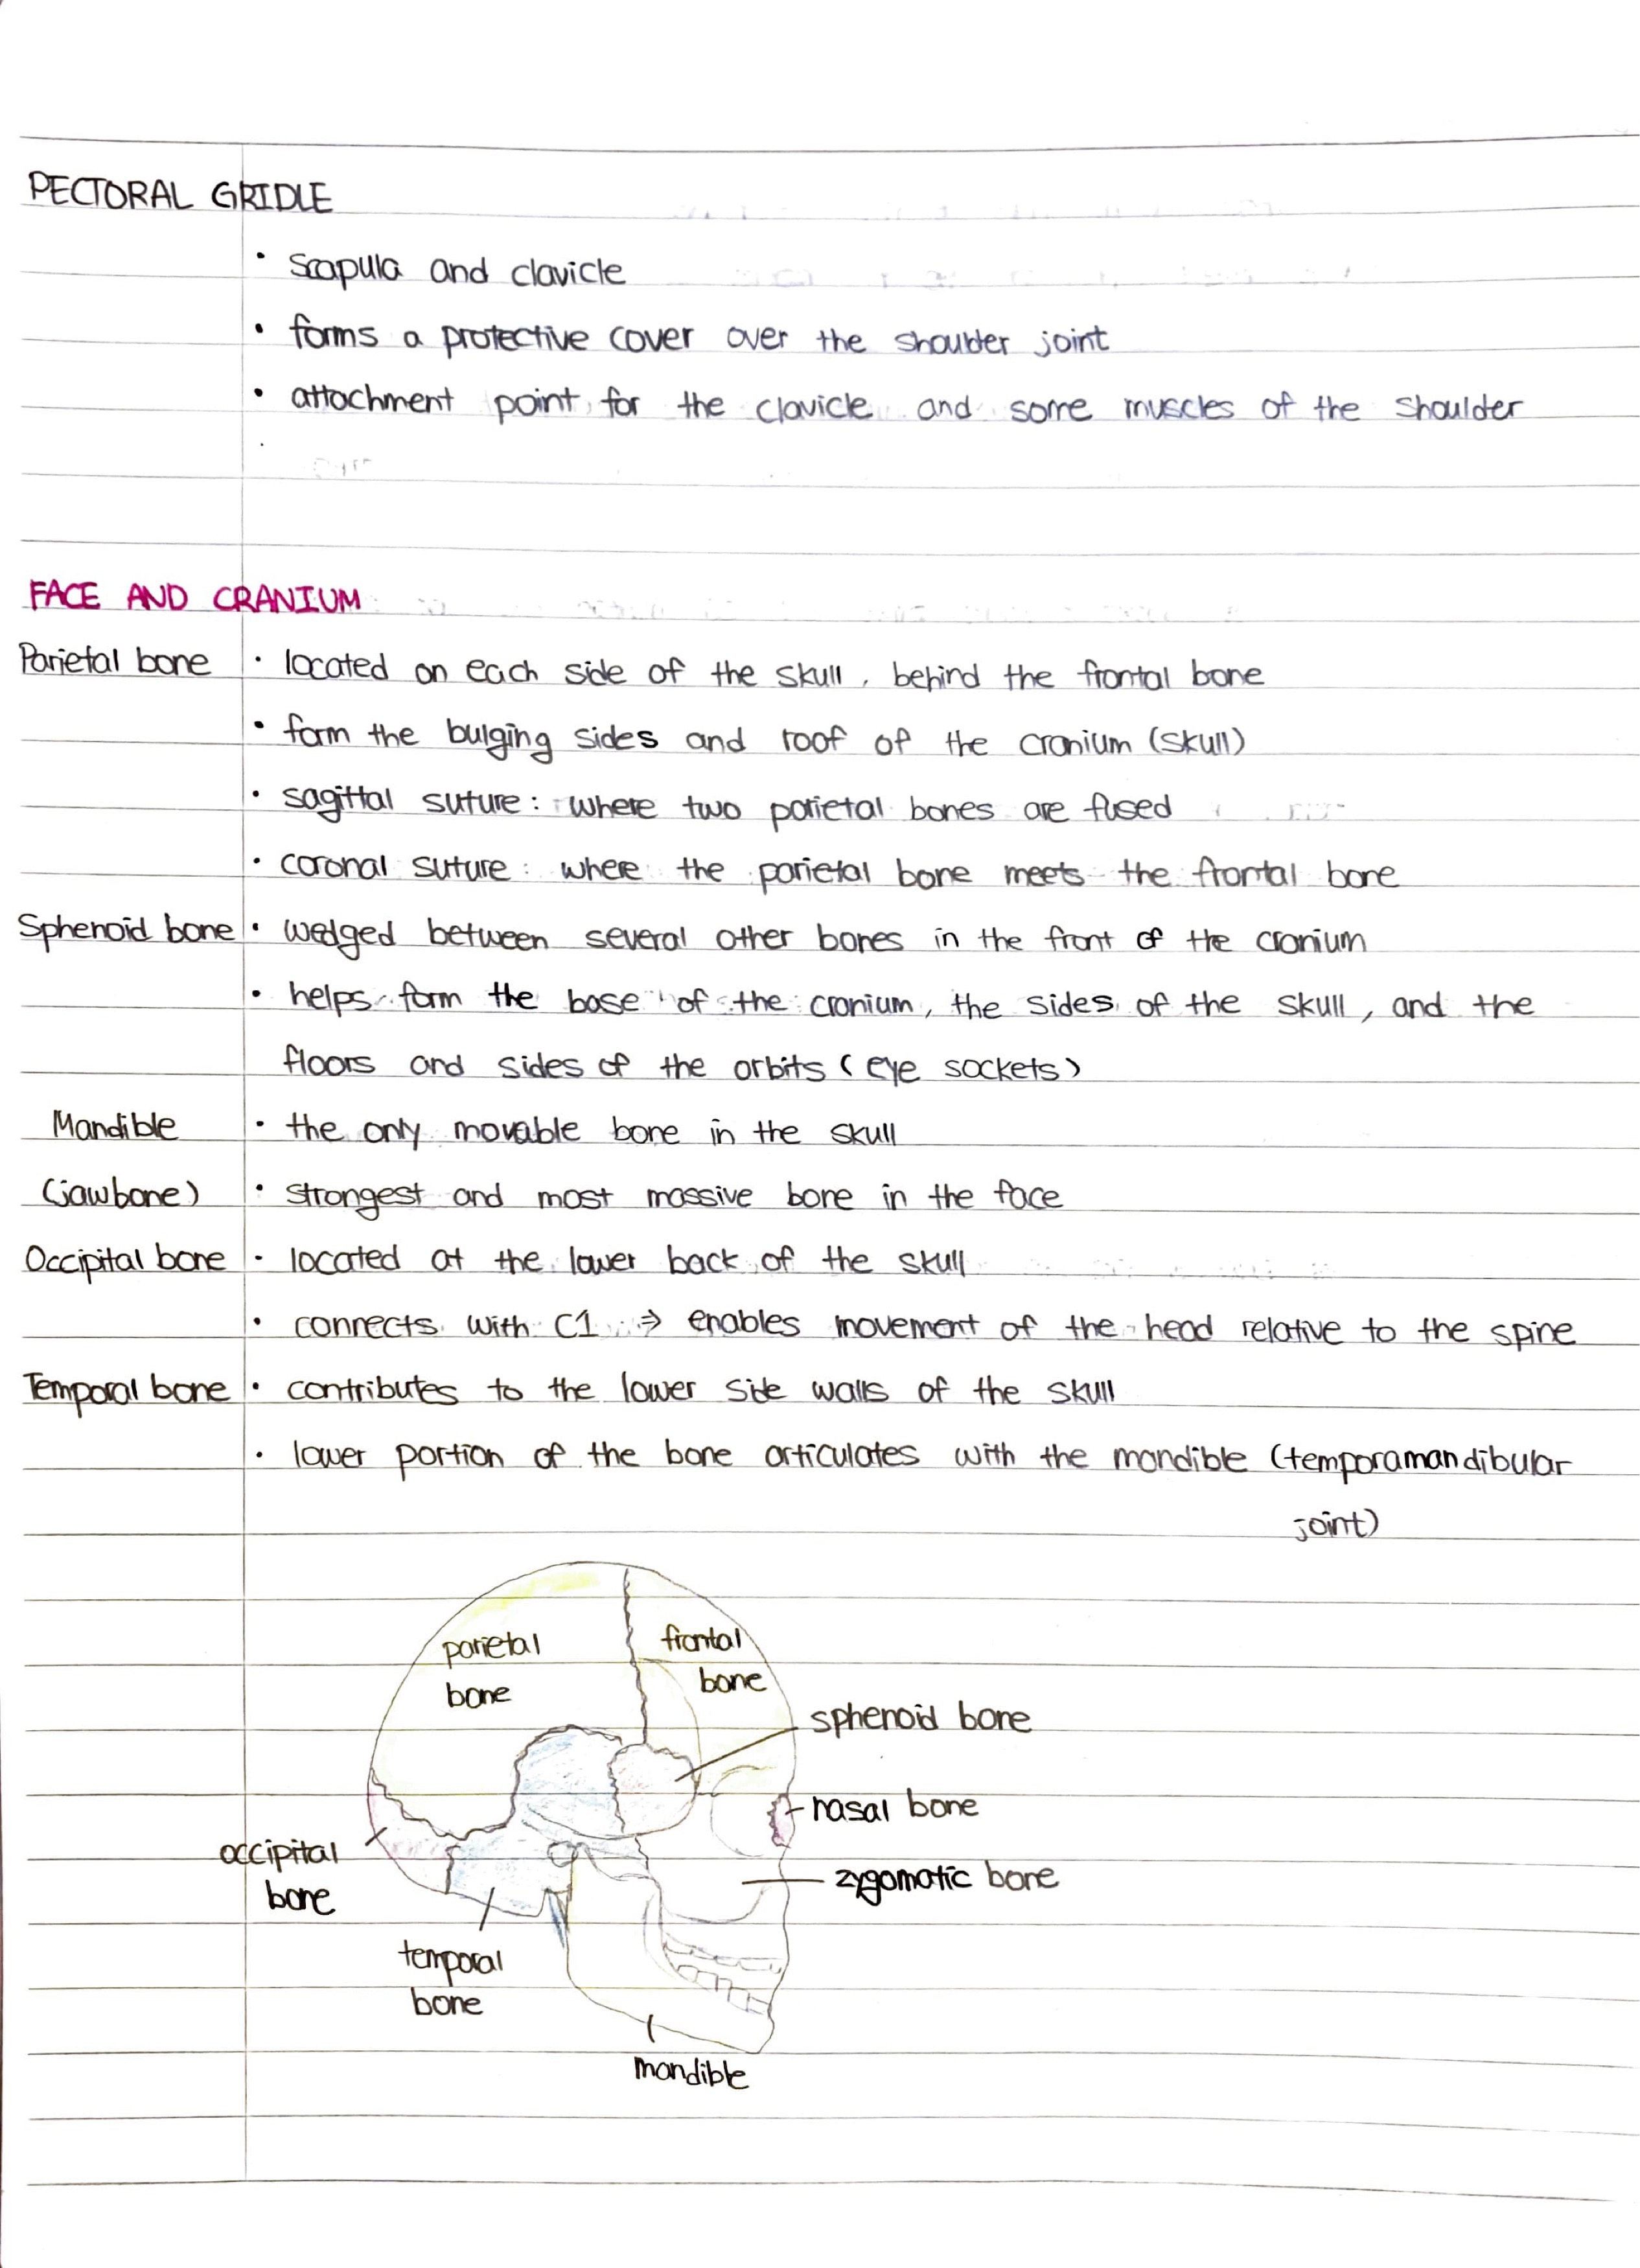 PECTORAL GRIDLE
• scapula and clavicle
• forms a protective cover over the shoulder joint
• attachment point for the clavicle and some muscles of the shoulder
FACE AND CRANIUM
Parietal bone • located on each side of the skull, behind the frontal bone
• form the bulging sides and roof of the cranium (skull)
• sagittal suture: where two parietal bones are fused
• coronal suture: where the parietal bone meets the frontal bone
Sphenoid bone • wedged between several other bones in the front of the cranium
• helps form the base of the cranium, the sides of the skull, and the
floors and sides of the orbits (eye sockets)
Mandible • the only movable bone in the skull
(jawbone) • strongest and most massive bone in the face
Occipital bone • located at the lower back of the skull
• connects with C1 → enables movement of the head relative to the spine
Temporal bone • contributes to the lower side walls of the skull
• lower portion of the bone articulates with the mandible (temporamandibular
joint)
parietal
bone
frontal
bone
sphenoid bone
nasal bone
occipital
bone
zygomatic bone
temporal
bone
mandible